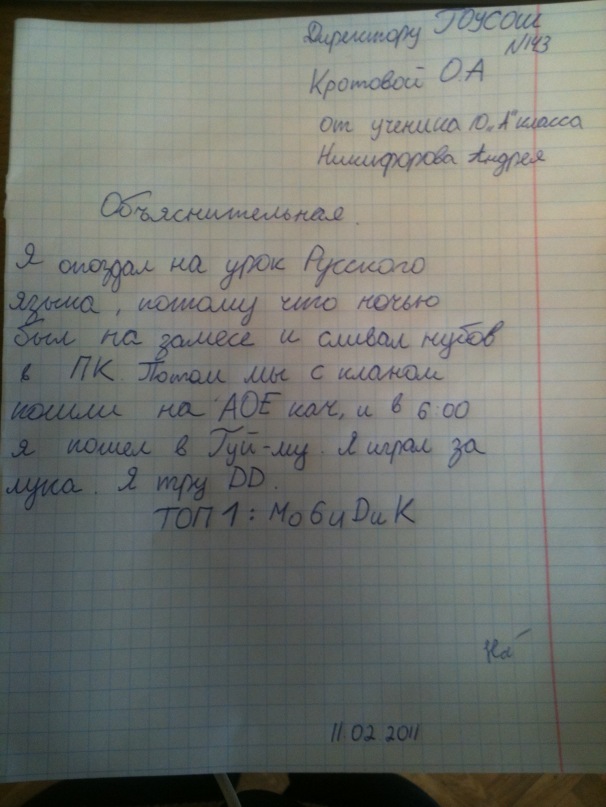 Директору ГОУСОШ
№143
Кротовой О.А
от ученика 10 „А" класса
Никифорова Андрея
Объяснительная.
Я опоздал на урок Русского
языка, потому что ночью
был на замесе и сливал нубов
в ПК. Потом мы с кланом
пошли на АОЕ кач, и в 6:00
я пошел в Гуй-му. Я играл за
лука. Я тру DD.
ТОП 1: МоБиDиК
11.02 2011